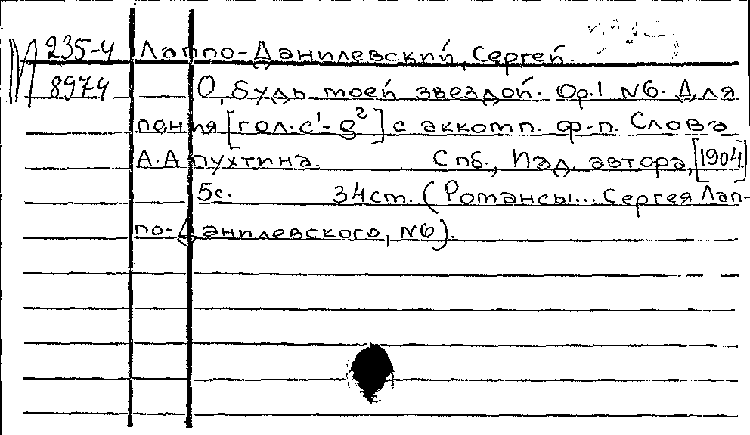 М 235-4 Лаппо-Данилевский, Сергей.
8974 О, будь моей звездой. Op.1 №6. Для
пения [гол. c¹-g²] с аккомп. ф-п. Слова
А. Апухтина. Спб., Изд. автора, [1904]
5с. 34см. (Романсы... Сергея Лап-
по-Данилевского, №6).